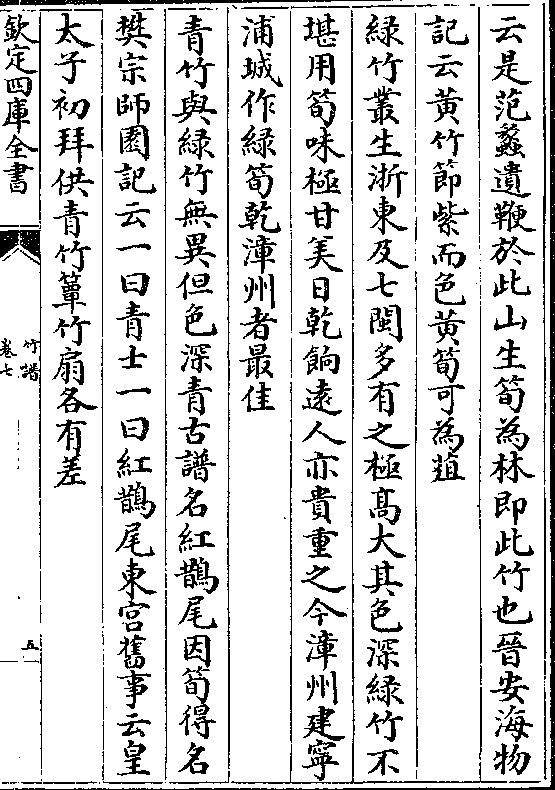 云是范蠡遺鞭於此山生筍為林即此竹也晉安海物
記云黃竹節紫而色黃筍可為葅
緑竹叢生浙東及七閩多有之極髙大其色深緑竹不
堪用筍味極甘美日乾餉遠人亦貴重之今漳州建寧
浦城作緑筍乾漳州者最佳
青竹與緑竹無異但色深青古譜名紅鵲尾因筍得名
樊宗師園記云一曰青士一曰紅鵲尾東宫舊事云皇
太子初拜供青竹簟竹扇各有差
欽定四庫全書
竹譜
卷七
五